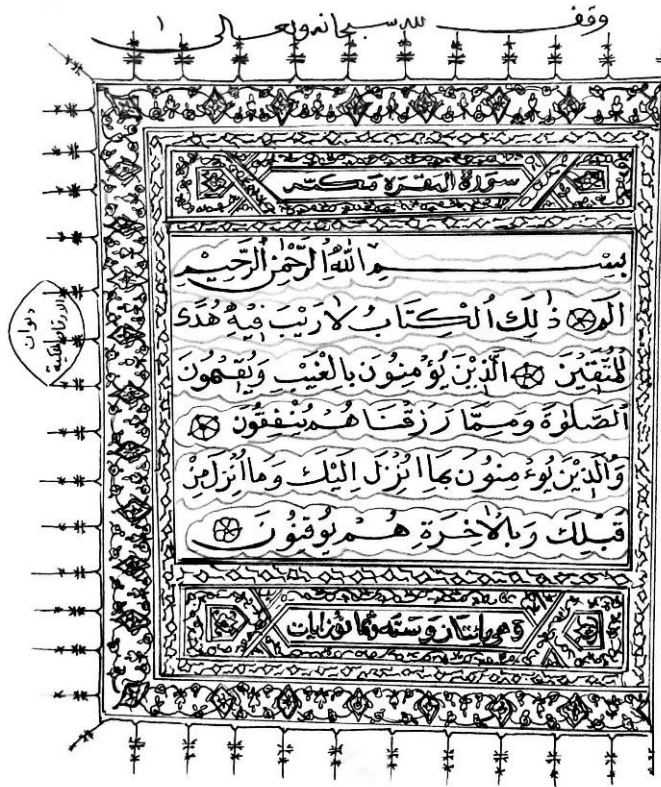 وقف لله سبحانه وتعالى ١
سورة البقرة مكية
بِسْمِ اللَّهِ الرَّحْمٰنِ الرَّحِيْمِ
الٓمٓ ذٰلِكَ الْكِتَابُ لَا رَيْبَ فِيْهِ هُدًى
لِلْمُتَّقِيْنَ الَّذِيْنَ يُؤْمِنُوْنَ بِالْغَيْبِ وَيُقِيْمُوْنَ
الصَّلٰوةَ وَمِمَّا رَزَقْنَاهُمْ يُنْفِقُوْنَ
وَالَّذِيْنَ يُؤْمِنُوْنَ بِمَا اُنْزِلَ اِلَيْكَ وَمَا اُنْزِلَ مِنْ
قَبْلِكَ وَبِالْاٰخِرَةِ هُمْ يُوْقِنُوْنَ
وهي مائتان وستة وثمانون ايات
ديوان
الاوقاف